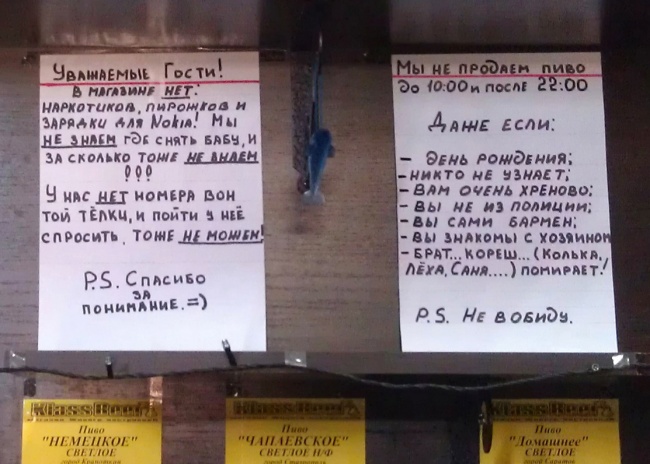 Уважаемые Гости!
В магазине нет:
наркотиков, пирожков и
зарядки для Nokia! Мы
не знаем где снять бабу, и
за сколько тоже не знаем
!!!
У нас нет номера вон
той тёлки, и пойти у неё
спросить, тоже не можем!
P.S. Спасибо
за
понимание. =)
Мы не продаем пиво
до 10:00 и после 22:00
Даже если:
– день рождения;
– никто не узнает;
– вам очень хреново;
– вы не из полиции;
– вы сами бармен;
– вы знакомы с хозяином
– брат... кореш... (Колька,
Лёха, Саня....) помирает!
P.S. Не в обиду.
KlassBeer
Пиво
"НЕМЕЦКОЕ"
СВЕТЛОЕ
KlassBeer
Пиво
"ЧАПАЕВСКОЕ"
СВЕТЛОЕ Н/Ф
KlassBeer
Пиво
"Домашнее"
СВЕТЛОЕ
город Саратов